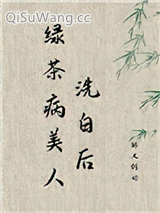 QiSuWang.cc
绿茶病美人
洗白后